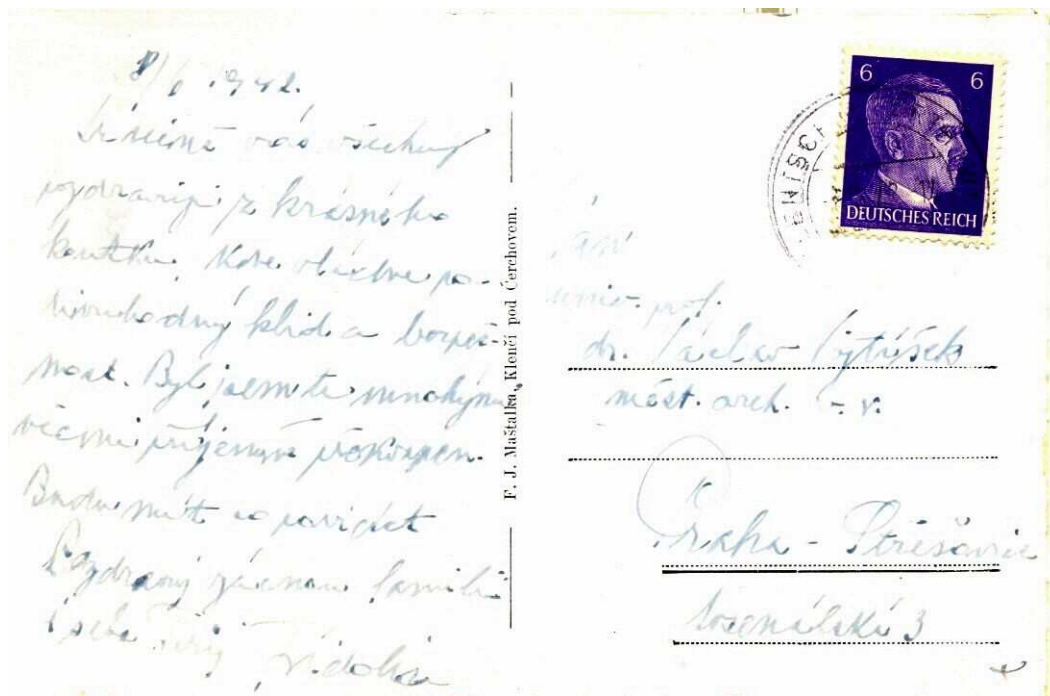 8/6 1942.
Srdečně vás všechny
pozdravuji z krásného
koutku, kde vládne po-
divuhodný klid a bezpeč-
nost. Byl jsem tu mnohými
věcmi příjemně překvapen.
Budu mít co povídat
Pozdravuj
F. J. Maštalka, Klenčí pod Čerchovem.
6 6
DEUTSCHES REICH
univ. prof.
dr. Václav Vojtíšek
měst. arch.
Praha - Střešovice
3